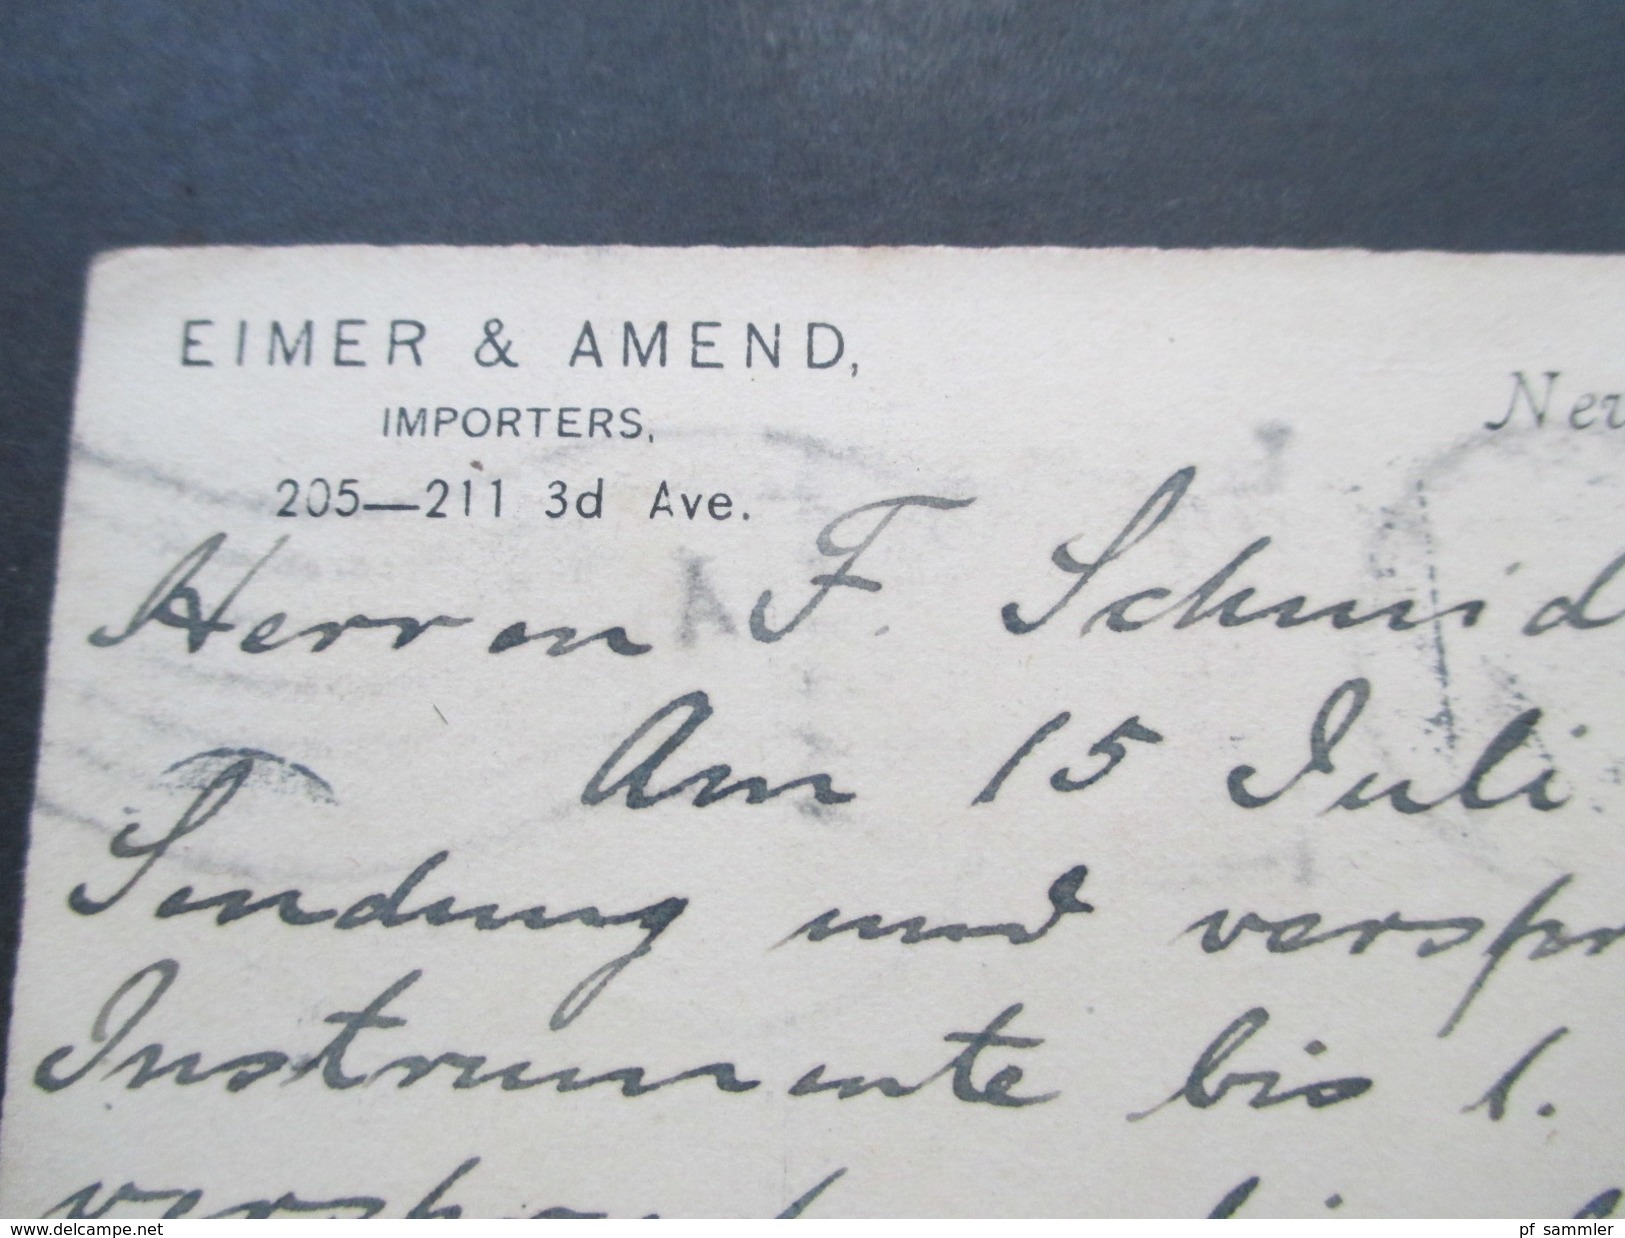 EIMER & AMEND,
IMPORTERS,
205—211 3d Ave.
Nev
Herren F. Schmid
Am 15 Juli
Sendung und verspr
Instrumente bis 1.
www.delcampe.net
pf_sammler